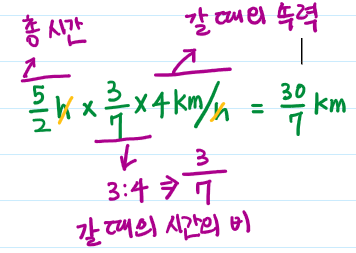 총 시간
갈 때의 속력
5/2 h × 3/7 × 4 km/h = 30/7 km
3:4 ⇒ 3/7
갈 때의 시간의 비